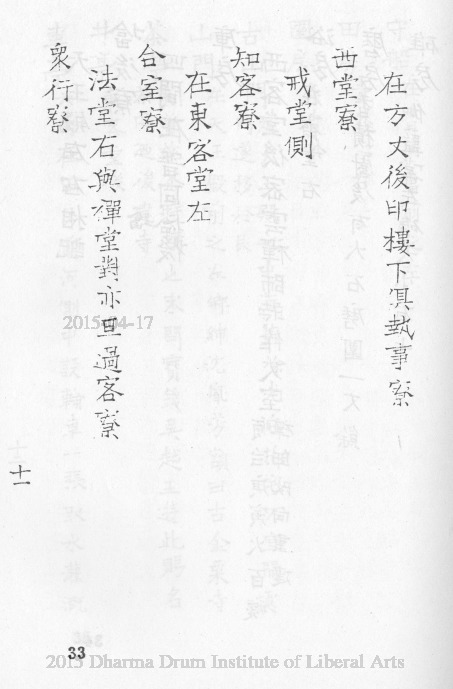 在方丈後印樓下俱執事寮
西堂寮
戒堂側
知客寮
在東客堂左
合室寮
法堂右與禪堂對亦亘過客寮
衆行寮
十一
2015-04-17
33
2015 Dharma Drum Institute of Liberal Arts